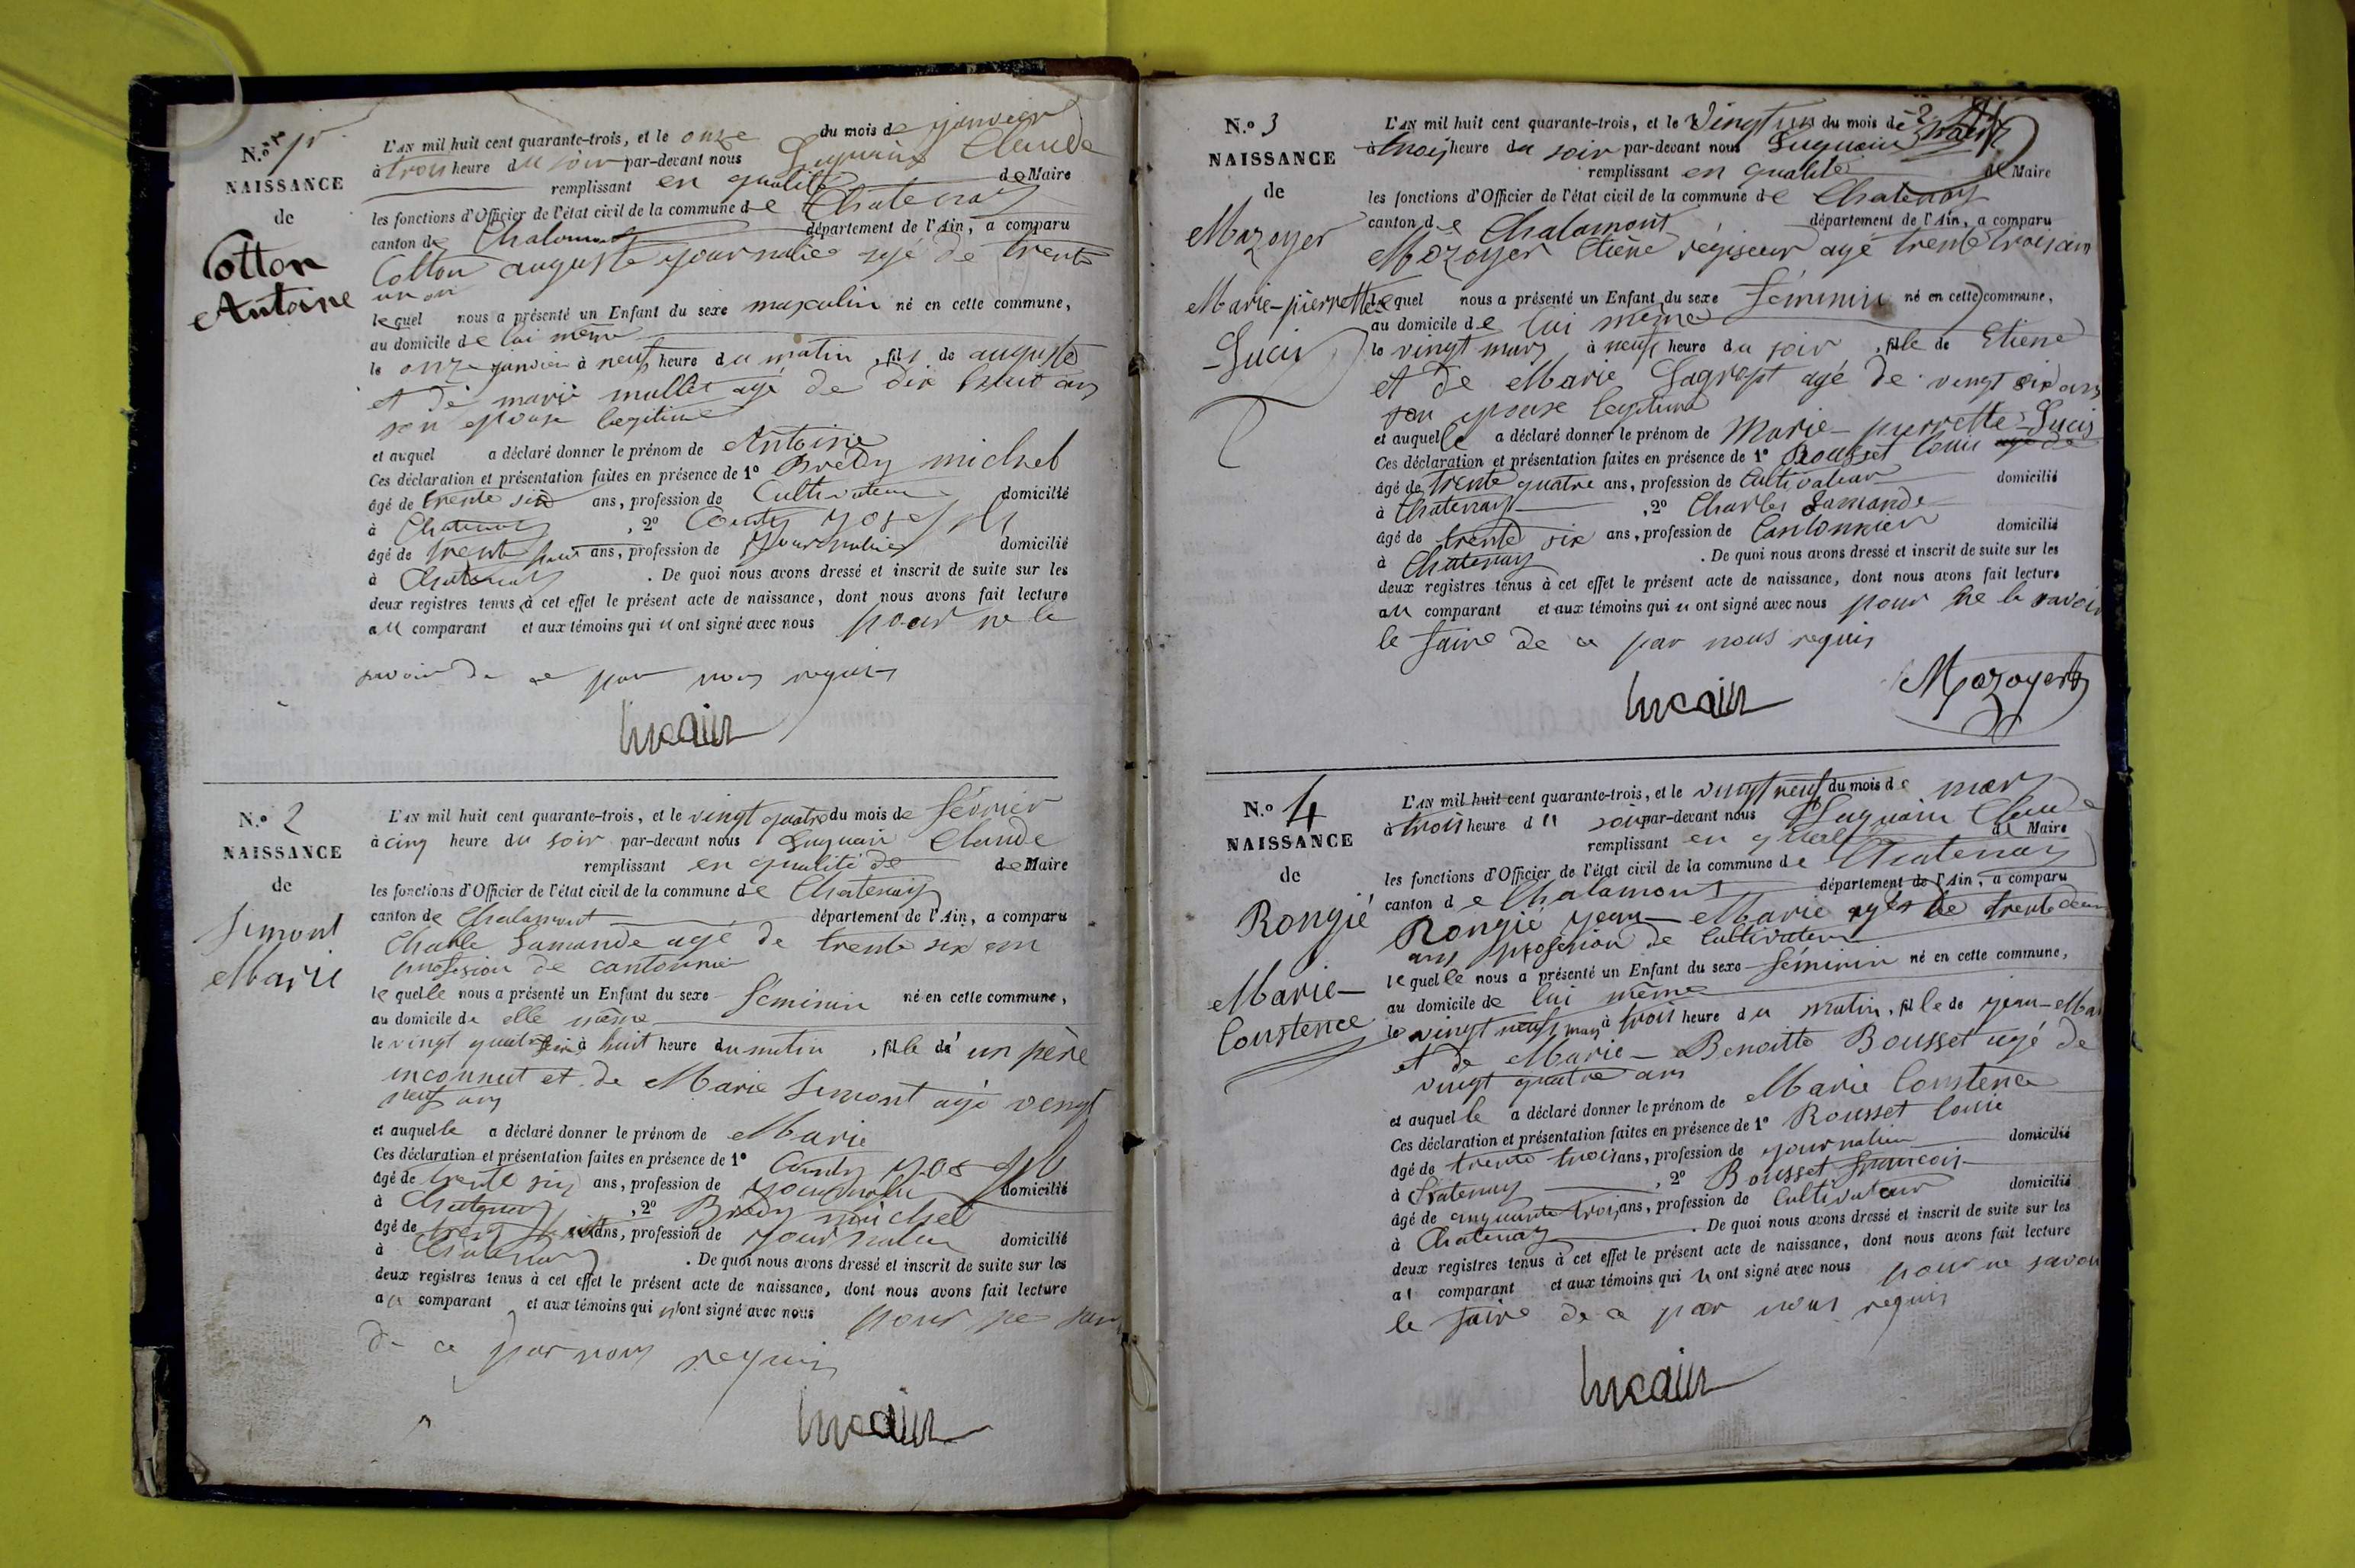 N.º 1er
NAISSANCE
de
Cotton
Antoine
L'AN mil huit cent quarante-trois, et le onze du mois de janvier
à trois heure du soir par-devant nous Luquain Claude
remplissant en qualité de Maire
les fonctions d'Officier de l'état civil de la commune de Chatenay
canton de Chalamont département de l'Ain, a comparu
Cotton auguste journalié agé de trente
un an
lequel nous a présenté un Enfant du sexe masculin né en cette commune,
au domicile de lui même
le onze janvier à neuf heure du matin, fils de auguste
et de marie mullet agé de dix huit ans
son epouse legitime
et auquel a déclaré donner le prénom de Antoine
Ces déclaration et présentation faites en présence de 1º Bredy michel
âgé de trente six ans, profession de Cultivateur domicilié
à Chatenay, 2º Couty Joseph
âgé de trente huit ans, profession de journalier domicilié
à Chatenay. De quoi nous avons dressé et inscrit de suite sur les
deux registres tenus à cet effet le présent acte de naissance, dont nous avons fait lecture
au comparant et aux témoins qui n ont signé avec nous pour ne le
savoir de ce par nous requis
lucain
N.º 2
NAISSANCE
de
Simont
Marie
L'AN mil huit cent quarante-trois, et le vingt quatre du mois de février
à cinq heure du soir par-devant nous Luquain Claude
remplissant en qualité de de Maire
les fonctions d'Officier de l'état civil de la commune de Chatenay
canton de Chalamont département de l'Ain, a comparu
Charle Lamande agé de trente six an
profesion de cantonnié
le quelle nous a présenté un Enfant du sexe féminin né en cette commune,
au domicile de elle même
le vingt quatre à huit heure du matin, fille de un père
inconnut et de Marie Simont agé vingt
neuf ans
et auquelle a déclaré donner le prénom de Marie
Ces déclaration et présentation faites en présence de 1º Couty Joseph
âgé de trente six ans, profession de journalier domicilié
à Chatenay, 2º Bredy michel
âgé de ans, profession de journalier domicilié
à Chatenay. De quoi nous avons dressé et inscrit de suite sur les
deux registres tenus à cet effet le présent acte de naissance, dont nous avons fait lecture
au comparant et aux témoins qui n'ont signé avec nous pour ne
de ce par nous requis
lucain
N.º 3
NAISSANCE
de
Mazoyer
Marie-pierrette
-Lucis
L'AN mil huit cent quarante-trois, et le vingt un du mois de mars
à trois heure du soir par-devant nous Luquain
remplissant en qualité de Maire
les fonctions d'Officier de l'état civil de la commune de Chatenay
canton de Chalamont département de l'Ain, a comparu
Mazoyer Etiene régiseur agé trente trois ans
lequel nous a présenté un Enfant du sexe féminin né en cette commune,
au domicile de lui même
le vingt mars à neuf heure du soir, fille de Etiene
et de Marie agé de vingt six ans
son epouse legitime
et auquelle a déclaré donner le prénom de Marie-pierrette-Lucis
Ces déclaration et présentation faites en présence de 1º Rousset louis agé de
âgé de trente quatre ans, profession de Cultivateur domicilié
à Chatenay, 2º Charles Lamande
âgé de trente six ans, profession de Cantonnier domicilié
à Chatenay. De quoi nous avons dressé et inscrit de suite sur les
deux registres tenus à cet effet le présent acte de naissance, dont nous avons fait lecture
au comparant et aux témoins qui n ont signé avec nous pour ne le savoir
le faire de ce par nous requis
lucain Mazoyer
N.º 4
NAISSANCE
de
Rongié
Marie-
Constence
L'AN mil huit cent quarante-trois, et le vingt neuf du mois de mars
à trois heure du soir par-devant nous Luquain Claude
remplissant en qualité de Maire
les fonctions d'Officier de l'état civil de la commune de Chatenay
canton de Chalamont département de l'Ain, a comparu
Rongié Jean-Marie agés de trente deux
ans profesion de Cultivateur
lequelle nous a présenté un Enfant du sexe féminin né en cette commune,
au domicile de lui même
le vingt neuf mars à trois heure du matin, fille de jean-Mar
et de Marie-Benoitte Bousset agé de
vingt quatre ans
et auquelle a déclaré donner le prénom de Marie Constence
Ces déclaration et présentation faites en présence de 1º Rousset louis
âgé de trente trois ans, profession de journalier domicilié
à Chatenay, 2º Bousset francois
âgé de cinquante trois ans, profession de Cultivateur domicilié
à Chatenay. De quoi nous avons dressé et inscrit de suite sur les
deux registres tenus à cet effet le présent acte de naissance, dont nous avons fait lecture
au comparant et aux témoins qui n ont signé avec nous pour ne savoir
le faire de ce par nous requis
lucain